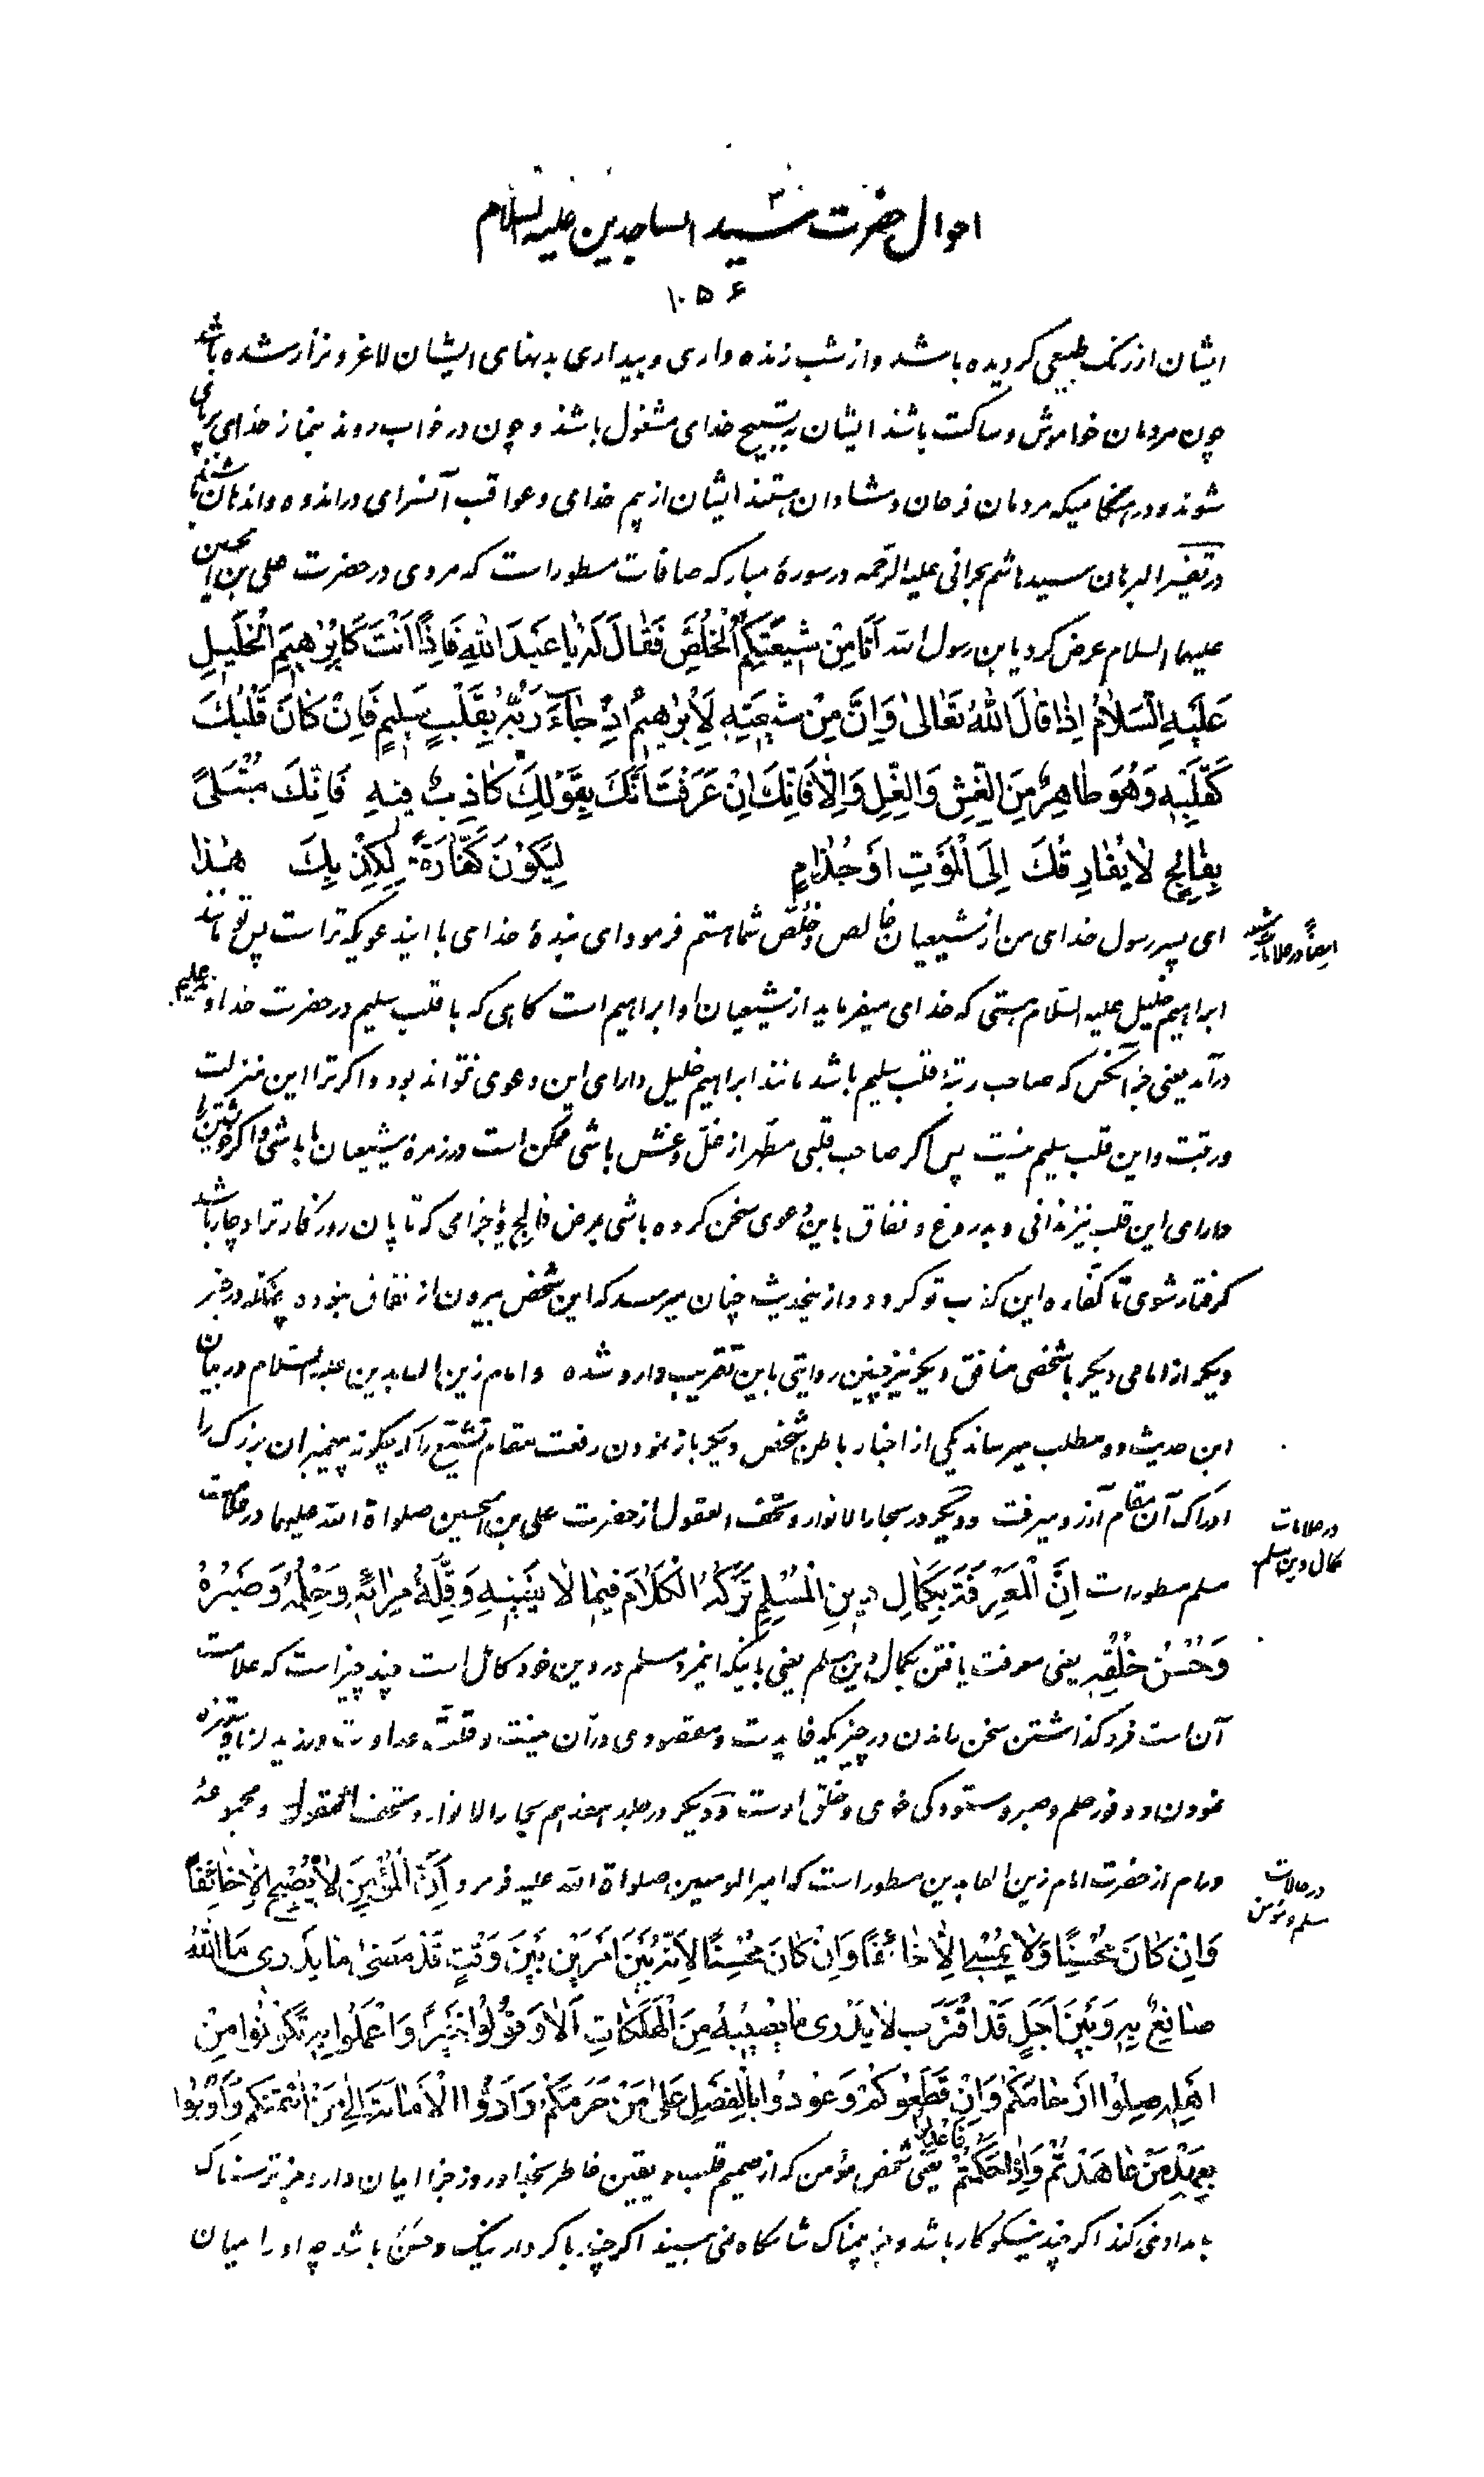 احوال حضرت سید الساجدین علیه السلام
۱۰۵۶
ایشان از رنک طبیعی کردیده باشد و از شب زنده داری و بیداری بدنهای ایشان لاغر و نزار شده باشد
چون مردمان خاموش و ساکت باشند ایشان به تسبیح خدای مشغول باشند و چون در خواب روند بنماز خدای برپای
شوند و در هنکامیکه مردمان فرحان و شادان هستند ایشان از بیم خدای و عواقب آنسرای در اندوه و اندهان باشند
در تفسیر البرهان سید هاشم بحرانی علیه الرحمه در سورهٔ مبارکه صافات مسطور است که مردی در حضرت علی بن الحسین
علیهما السلام عرض کرد یابن رسول الله اَنَا مِنْ شیعَتِکُمُ الْخُلَّصِ فَقالَ لَهُ یا عَبْدَ اللهِ فَاِذًا اَنْتَ کَاِبْرٰهیمَ الْخَلیلِ
عَلَیْهِ السَّلامُ اِذا قالَ اللهُ تَعالیٰ وَاِنَّ مِنْ شیعَتِهِ لَاِبْرٰهیمَ اِذْ جاءَ رَبَّهُ بِقَلْبٍ سَلیمٍ فَاِنْ کانَ قَلْبُکَ
کَقَلْبِهِ وَهُوَ طاهِرٌ مِنَ الْغِشِّ وَالْغِلِّ وَاِلّا فَاِنَّکَ اِنْ عَرَفْتَ اَنَّکَ بِقَوْلِکَ کاذِبٌ فیهِ فَاِنَّکَ مُبْتَلیً
بِفالِجٍ لا یُفارِقُکَ اِلَی الْمَوْتِ اَوْ جُذامٍ لِیَکُونَ کَفّارَةً لِکِذْبِکَ هذا
ای پسر رسول خدای من از شیعیان خالص و خلّص شما هستم فرمود ای بندهٔ خدای با ایندعوی که تراست پس تو مانند
ابراهیم خلیل علیه السلام هستی که خدای میفرماید از شیعیان او ابراهیم است کاهی که با قلب سلیم در حضرت خداوند علیم
درآمد یعنی جز آنکس که صاحب رتبهٔ قلب سلیم باشد مانند ابراهیم خلیل دارای این دعوی نتواند بود و اکر ترا این منزلت
و رتبت و این قلب سلیم نیست پس اکر صاحب قلبی مطهر از غلّ و غش باشی ممکن است در زمرهٔ شیعیان ما باشی و اکر خویشتن را
دارای این قلب نیز ندانی و بدروغ و نفاق باین دعوی سخن کرده باشی بمرض فالج یا جذامی که تا پایان روزکار ترا دچار باشد
کرفتار شوی تا کفاره این کذب تو کردد و از ینحدیث چنان میرسد که این شخص بیرون از نفاق نبوده چنانکه در خبر
دیکر از امامی دیکر با شخصی منافق دیکر نیز چنین روایتی باین تقریب وارد شده و امام زین العابدین علیه السلام در بیان
این حدیث دو مطلب میرساند یکی از اخبار باطن شخص دیکر باز نمودن رفعت مقام تشیّع را که چکونه پیغمبران بزرک را
ادراک آن مقام آرزو میرفت و دیکر در بحار الانوار و تحف العقول از حضرت علی بن الحسین صلواة الله علیهما در علامت
مسلم مسطور است اِنَّ الْمَعْرِفَةَ بِکَمالِ دینِ الْمُسْلِمِ تَرْکُهُ الْکَلامَ فیما لا یَعْنیهِ وَقِلَّةُ مِرائِهِ وَحِلْمُهُ وَصَبْرُهُ
وَحُسْنُ خُلْقِهِ یعنی معرفت یافتن بکمال دین مسلم یعنی باینکه اینمرد مسلم در دین خود کامل است چند چیز است که علامت
آن است فرو کذاشتن سخن راندن در چیزیکه فایدت و مقصودی در آن نیست و قلت عداوت ورزیدن و ستیزه
نمودن و وفور حلم و صبر و ستودکی خوی و خلق اوست و دیکر در جلد هفدهم بحار الانوار و تحف العقول و مجموعهٔ
ورام از حضرت امام زین العابدین مسطور است که امیر المومنین صلواة الله علیه فرمود اِنَّ الْمُؤْمِنَ لا یُصْبِحُ اِلّا خائِفًا
وَاِنْ کانَ مُحْسِنًا وَلا یُمْسی اِلّا خائِفًا وَاِنْ کانَ مُحْسِنًا لِاَنَّهُ بَیْنَ اَمْرَیْنِ بَیْنَ وَقْتٍ قَدْ مَضیٰ ما یَدْری مَا اللهُ
صانِعٌ بِهِ وَبَیْنَ اَجَلٍ قَدِ اقْتَرَبَ لا یَدْری ما یُصیبُهُ مِنَ الْهَلَکاتِ اَلا وَقُولُوا خَیْرًا وَاعْمَلُوا بِهِ تَکُونُوا مِنْ
اَهْلِهِ صِلُوا اَرْحامَکُمْ وَاِنْ قَطَعُوکُمْ وَعُودُوا بِالْفَضْلِ عَلیٰ مَنْ حَرَمَکُمْ وَاَدُّوا الْاَمانَةَ اِلیٰ مَنِ ائْتَمَنَکُمْ وَاَوْفُوا
بِعَهْدِ مَنْ عاهَدْتُمْ وَاِذا حَکَمْتُمْ فَاعْدِلُوا یعنی شخص مؤمن که از صمیم قلب و یقین خاطر بخدا و روز جزا ایمان دارد جز ترسناک
بامداد نمی کند اکر چند نیکو کار باشد و جز بیمناک شامکاه نمی بیند اکر چند با کردار نیک و حسن باشد چه او را میان
ایضاً در علامات شیعه
در علامات
کمال دین مسلم
در حالات
مسلم و مؤمن